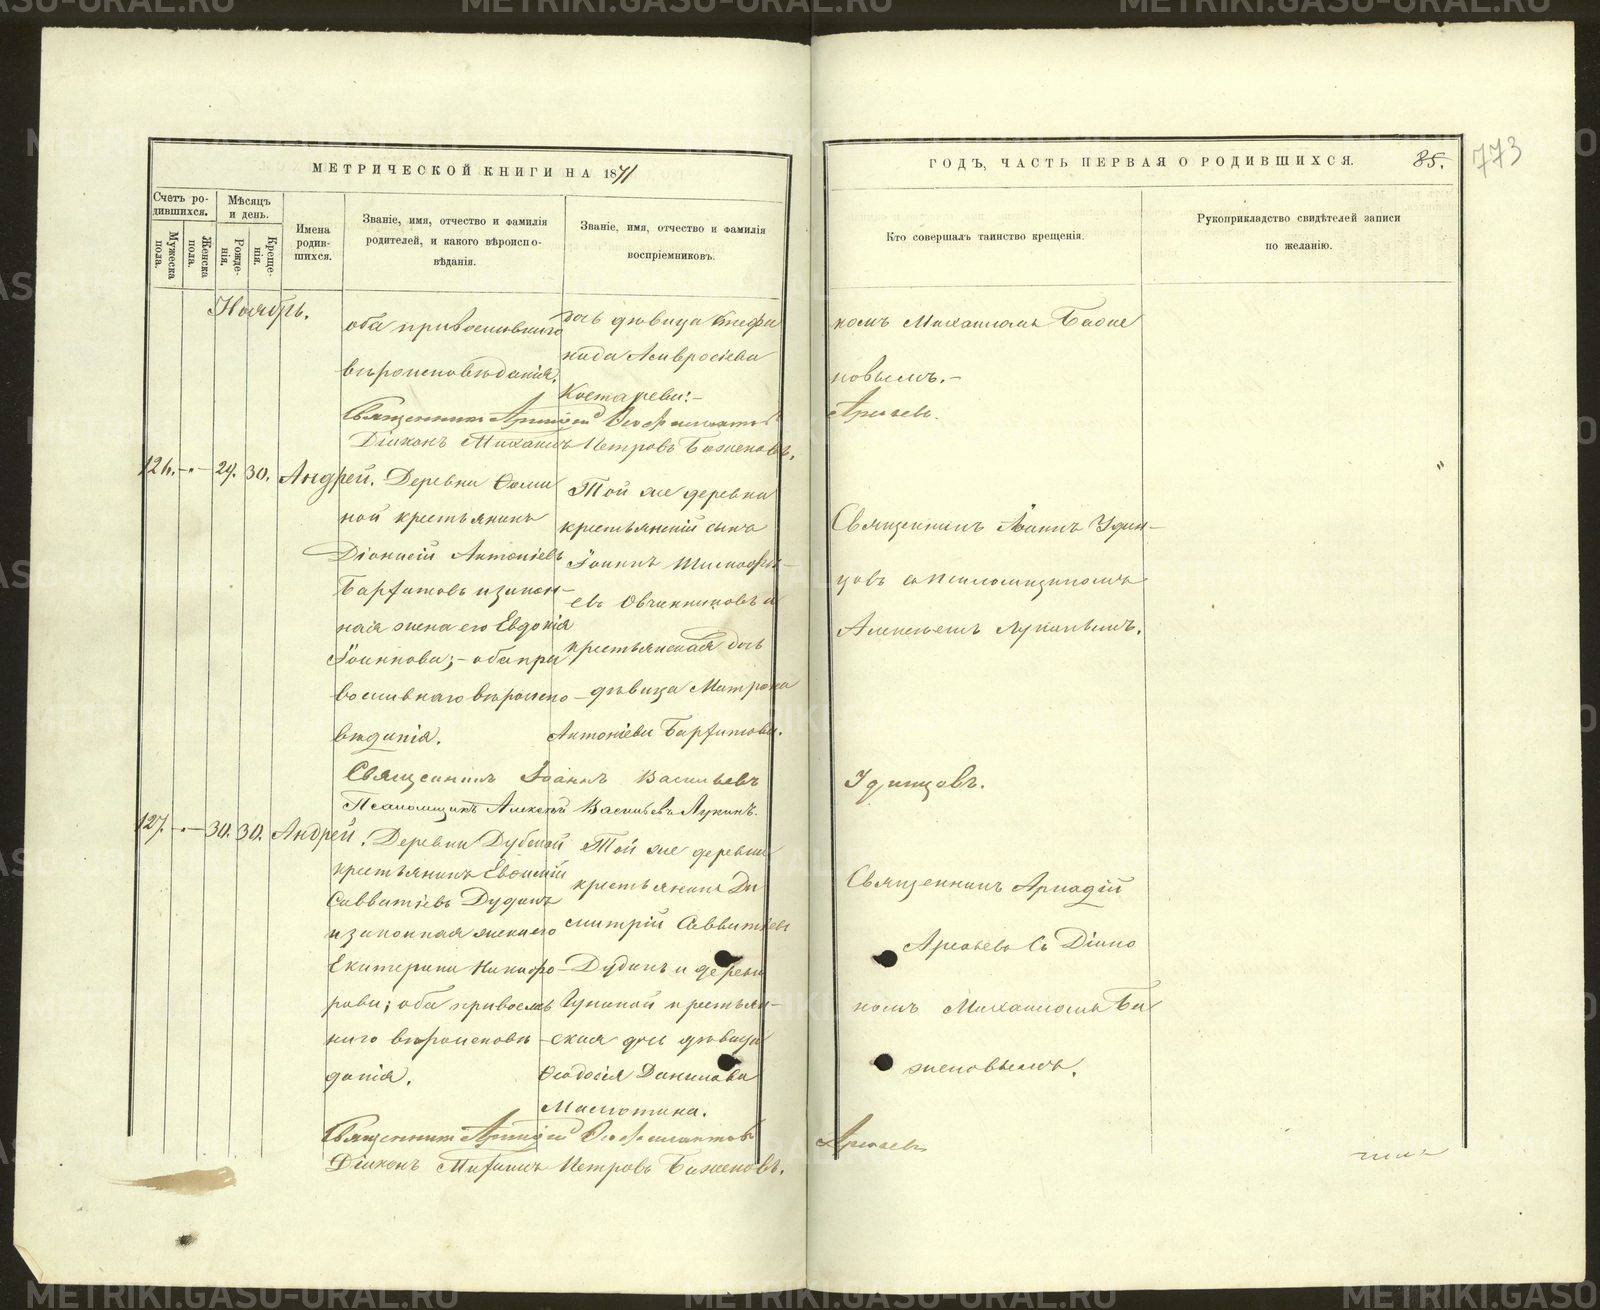 МЕТРИЧЕСКОЙ КНИГИ НА 1871
Счетъ ро-
дившихся.
Мужеска
пола.
Женска
пола.
Мѣсяцъ
и день.
Рожде-
нія.
Креще-
нія.
Имена
родив-
шихся.
Званіе, имя, отчество и фамилія
родителей, и какого вѣроиспо-
вѣданія.
Званіе, имя, отчество и фамилія
воспріемниковъ.
Ноябрь.
оба православнаго
вѣроисповѣданія.
дочь дѣвица Стефа
нида Амвросіева
Костарева:-
Священникъ Аркадій
Діаконъ Михаилъ Петровъ Баженовъ.
126. - 29. 30. Андрей.
Деревни Ѳоми
ной крестьянинъ
Діонисій Антоніевъ
и закон-
ная жена его Евдокія
Іоаннова; - оба пра
вославнаго вѣроиспо
вѣданія.
Той же деревни
крестьянскій сынъ
Іоаннъ
евъ Овчинниковъ и
крестьянская дочь
дѣвица Матрона
Антоніева
Священникъ Іоаннъ Васильевъ
Псаломщикъ Алексѣй Васильевъ Лукинъ.
127. - 30. 30. Андрей.
Деревни Дубской
крестьянинъ Евѳимій
Савватіевъ Дудинъ
и законная жена его
Екатерина Никифо
рова; оба православ
наго вѣроисповѣ
данія.
Той же деревни
крестьянинъ Ди
митрій Савватіевъ
Дудинъ и деревни
крестьян-
ская дочь дѣвица
Ѳеодосія Данилова
Малютина.
Священникъ Аркадій
Діаконъ Михаилъ Петровъ Баженовъ.
ГОДЪ, ЧАСТЬ ПЕРВАЯ О РОДИВШИХСЯ.
85.
773
Кто совершалъ таинство крещенія.
Рукоприкладство свидѣтелей записи
по желанію.
номъ Михаиломъ Баже
новымъ.-
Священникъ Іоаннъ Удин-
цовъ съ псаломщикомъ
Алексѣемъ Лукинымъ.
Удинцовъ.
Священникъ Аркадій
съ Діако
номъ Михаиломъ Ба
женовымъ.
METRIKI.GASU-URAL.RU